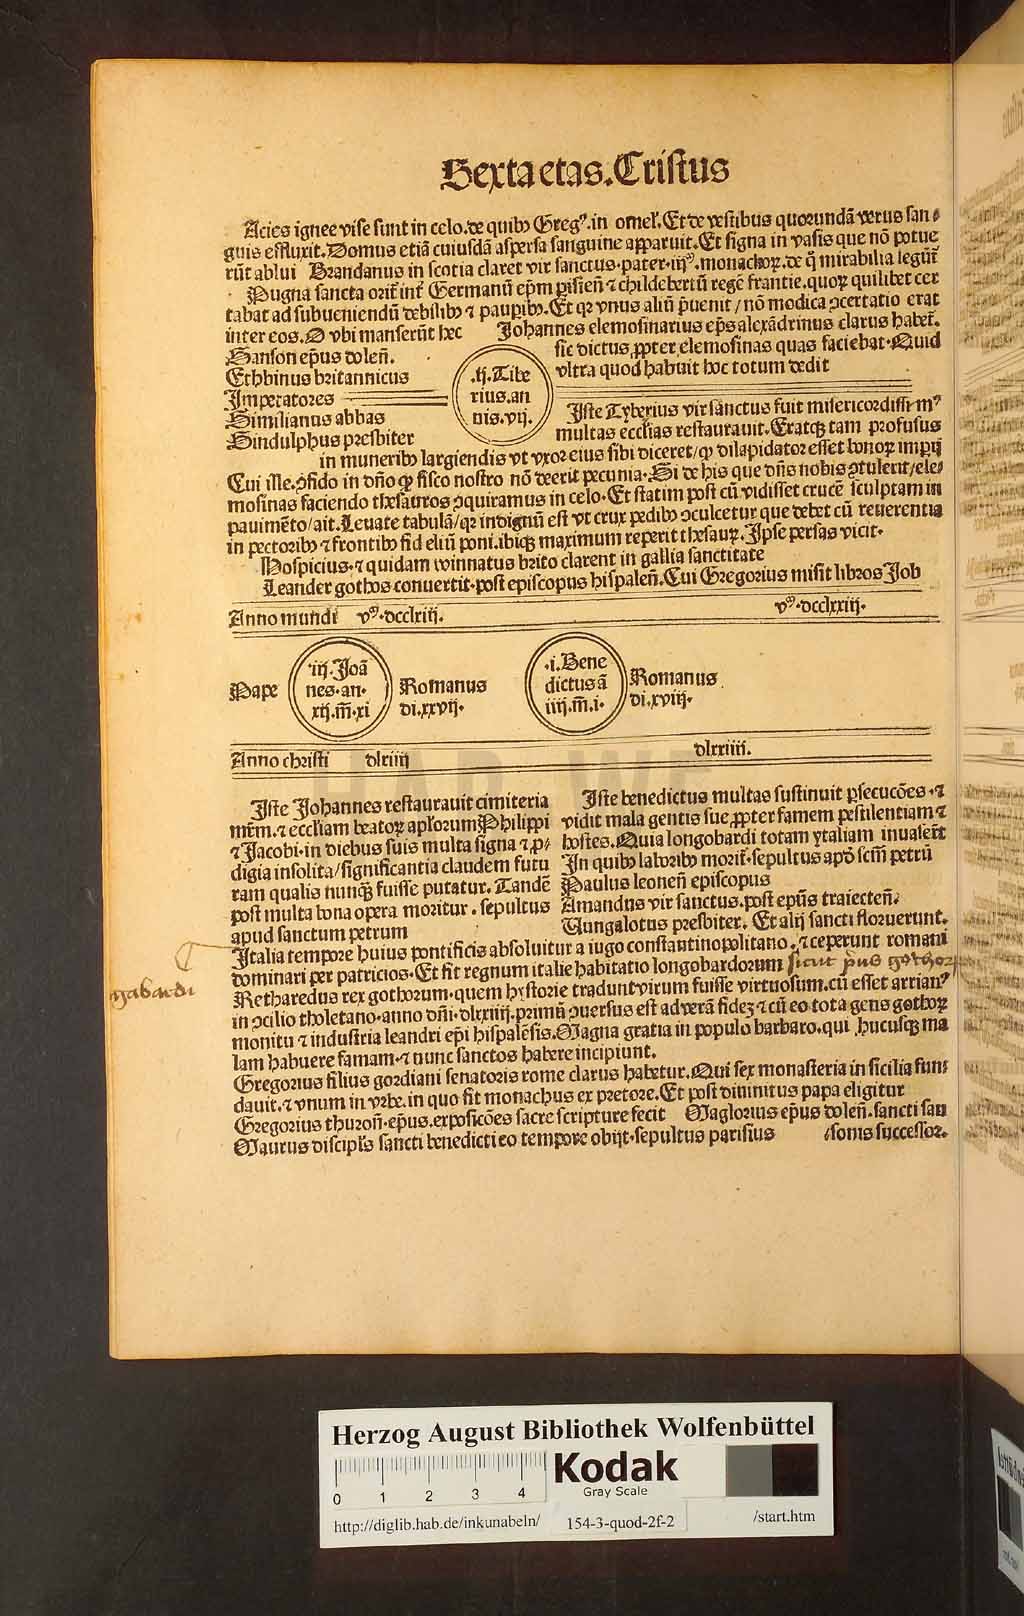 Sexta etas. Cristus
Acies ignee vise sunt in celo. de quibꝰ Gregꝰ. in omel̉. Et de vestibus quorundã verus san⸗
guis effluxit. Domus etiã cuiusdã aspersa sanguine apparuit. Et signa in vasis que nõ potue
rũt ablui Brandanus in scotia claret vir sanctus. pater. iijᵐ. monachoꝝ. de q̃ mirabilia legũt̃
Pugna sancta orit̃ int̃ Germanũ ep̃m pisieñ ⁊ childebertũ regẽ frantie. quoꝝ quilibet cer
tabat ad subueniendũ debilibꝰ ⁊ paupibꝰ. Et qꝛ vnus aliũ p̃uenit / nõ modica ꝯcertatio erat
inter eos. O vbi manserũt hec Johannes elemosinarius ep̃s alexãdrinus clarus habet̃.
Sanson ep̃us doleñ. sic dictus ꝓpter elemosinas quas faciebat. Quid
Ethbinus britannicus .ij. Tibe vltra quod habuit hoc totum dedit
Imperatores rius. an
Similianus abbas nis. vij. Iste Tyberius vir sanctus fuit misericordissimꝰ
Sindulphus presbiter multas eccl̃ias restaurauit. Eratqꝫ tam profusus
in muneribꝰ largiendis vt vxor eius sibi diceret / ꝙ dilapidator esset bonoꝝ imperij
Cui ille. ꝯfido in dño ꝙ fisco nostro nõ deerit pecunia. Si de his que dñs nobis ꝯtulerit / ele⸗
mosinas faciendo thesauros ꝯquiramus in celo. Et statim post cũ vidisset crucẽ sculptam in
pauimẽto / ait. Leuate tabulã / qꝛ indignũ est vt crux pedibꝰ ꝯculcetur que debet cũ reuerentia
in pectoribꝰ ⁊ frontibꝰ fideliũ poni. ibiqꝫ maximum reperit thesauꝝ. Ipse persas vicit.
Hospicius. ⁊ quidam winnatus brito clarent in gallia sanctitate
Leander gothos conuertit. post episcopus hispaleñ. Cui Gregorius misit libros Job
Anno mundi vᵐ. dcclxiij. vᵐ. dcclxxiij.
Pape .iij. Joã nes. an. xij. m̃. xi Romanus di. xxvij. .i. Bene dictus ã iiij. m̃. i. Romanus di. xviij.
Anno christi dlxiiij dlxxiiij.
Iste Johannes restaurauit cimiteria
mr̃m. ⁊ eccl̃iam beatoꝝ apl̃orum Philippi
⁊ Jacobi. in diebus suis multa signa ⁊ ꝓ⸗
digia insolita / significantia claudem futu
ram qualis nunqꝫ fuisse putatur. Tandẽ
post multa bona opera moritur. sepultus
apud sanctum petrum
Iste benedictus multas sustinuit ꝑsecucões. ⁊
vidit mala gentis sue ꝓpter famem pestilentiam ⁊
hostes. Quia longobardi totam ytaliam inuaserũt
In quibꝰ laboribꝰ morit̃. sepultus apd̃ scm̃ petrũ
Paulus leoneñ episcopus
Amandus vir sanctus. post ep̃us traiecteñ.
Vungalotus presbiter. Et alij sancti floruerunt.
Italia tempore huius pontificis absoluitur a iugo constantinopolitano. ⁊ ceperunt romani
dominari per patricios. Et fit regnum italie habitatio longobardorum sicut p̃us gothoꝝ
gabardi
Retharedus rex gothorum. quem hystorie tradunt virum fuisse virtuosum. cũ esset arrianꝰ
in ꝯcilio tholetano. anno dñi. dlxxiiij. primũ ꝯuersus est ad verã fidez ⁊ cũ eo tota gens gothoꝝ
monitu ⁊ industria leandri ep̃i hispalẽsis. Magna gratia in populo barbaro. qui hucusqꝫ ma
lam habuere famam. ⁊ nunc sanctos habere incipiunt.
Gregorius filius gordiani senatoris rome clarus habetur. Qui sex monasteria in sicilia fun⸗
dauit. ⁊ vnum in vrbe. in quo fit monachus ex pretore. Et post diuinitus papa eligitur
Gregorius thuroñ. ep̃us. exposicões sacre scripture fecit Maglorius ep̃us doleñ. sancti san
Maurus discipl̃s sancti benedicti eo tempore obijt. sepultus parisius /sonis successor.
Herzog August Bibliothek Wolfenbüttel
0 1 2 3 4
Kodak
Gray Scale
http://diglib.hab.de/inkunabeln/ 154-3-quod-2f-2 /start.htm